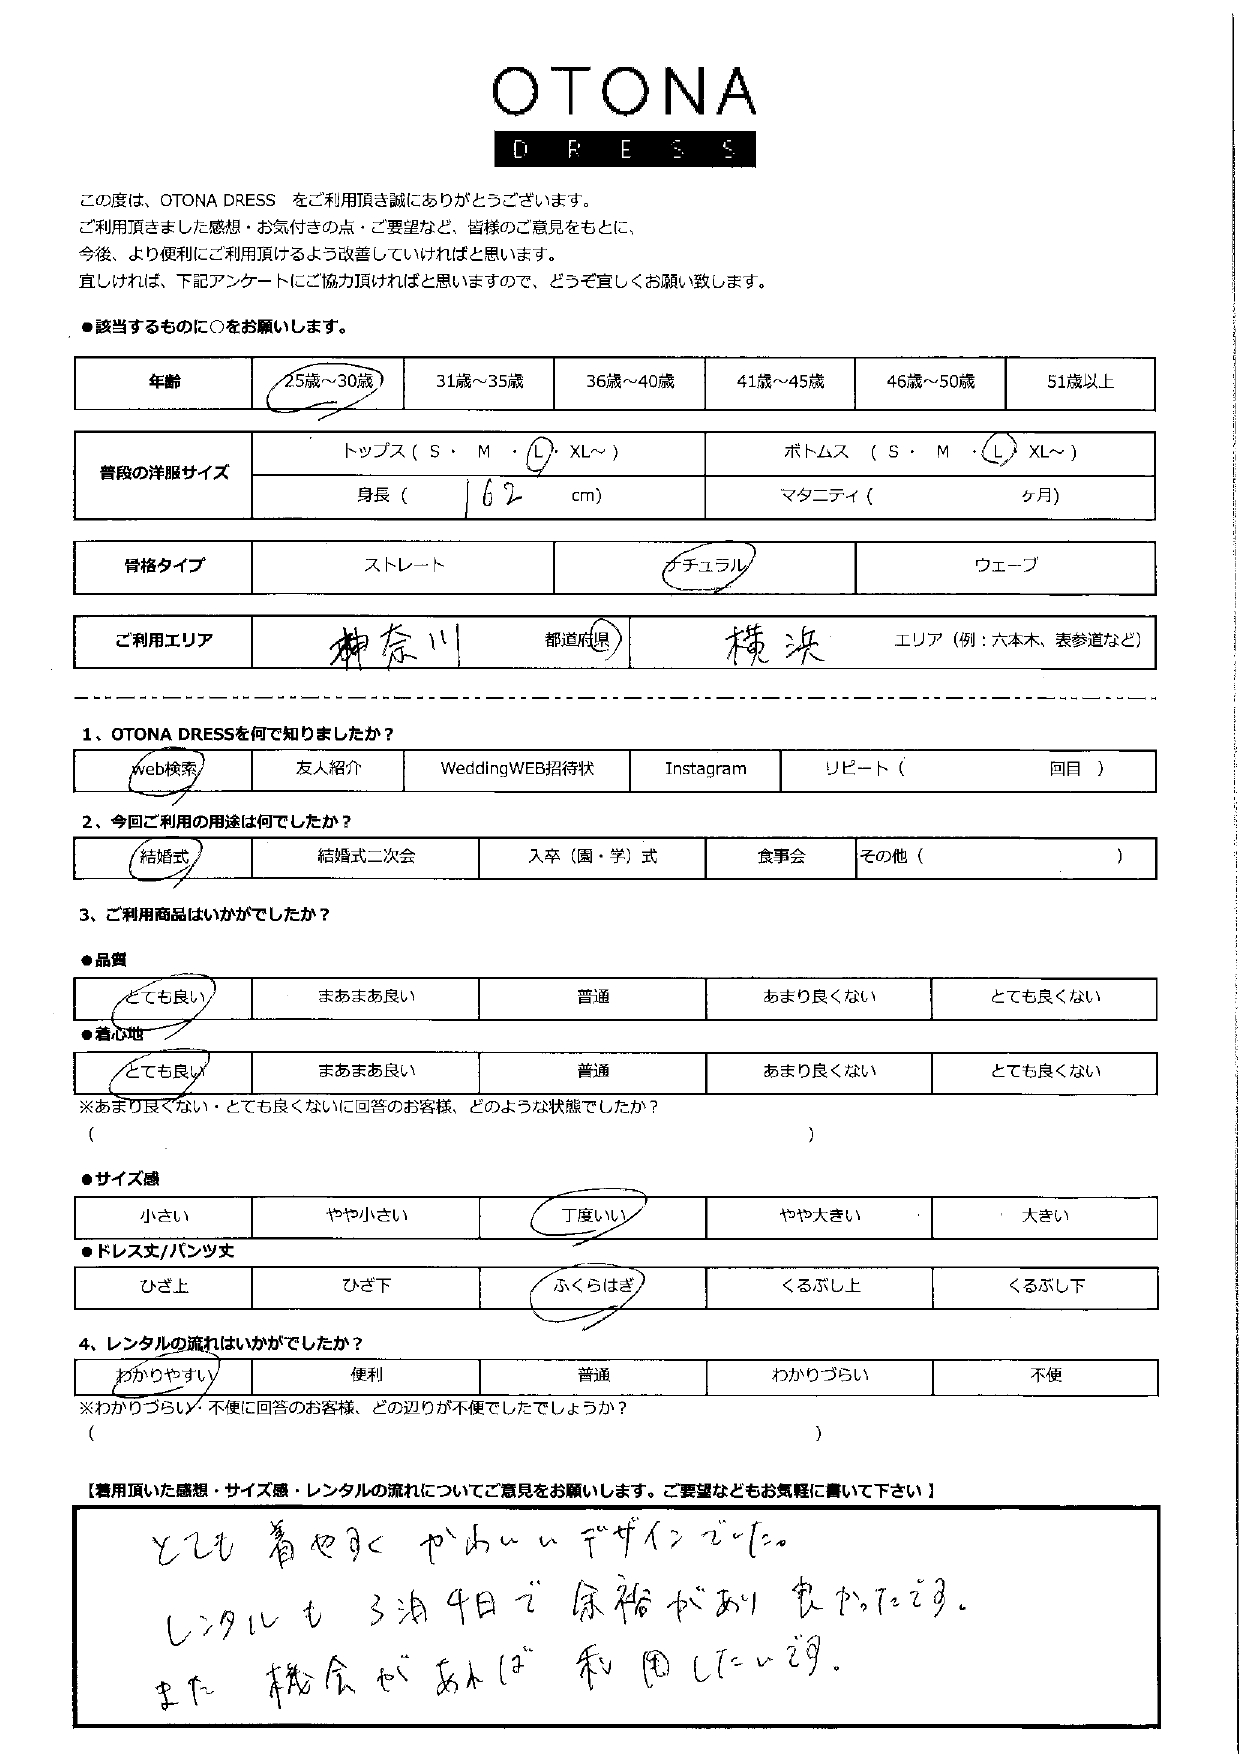 OTONA
DRESS
この度は、OTONA DRESS　をご利用頂き誠にありがとうございます。
ご利用頂きました感想・お気付きの点・ご要望など、皆様のご意見をもとに、
今後、より便利にご利用頂けるよう改善していければと思います。
宜しければ、下記アンケートにご協力頂ければと思いますので、どうぞ宜しくお願い致します。
●該当するものに○をお願いします。
年齢 25歳～30歳 31歳～35歳 36歳～40歳 41歳～45歳 46歳～50歳 51歳以上
普段の洋服サイズ
トップス ( S ・ M ・ L ・ XL～ ) ボトムス ( S ・ M ・ L ・ XL～ )
身長 ( 162 cm) マタニティ ( ヶ月)
骨格タイプ ストレート ナチュラル ウェーブ
ご利用エリア 神奈川 都道府県 横浜 エリア（例：六本木、表参道など）
1、OTONA DRESSを何で知りましたか？
web検索 友人紹介 WeddingWEB招待状 Instagram リピート ( 回目 )
2、今回ご利用の用途は何でしたか？
結婚式 結婚式二次会 入卒（園・学）式 食事会 その他 ( )
3、ご利用商品はいかがでしたか？
●品質
とても良い まあまあ良い 普通 あまり良くない とても良くない
●着心地
とても良い まあまあ良い 普通 あまり良くない とても良くない
※あまり良くない・とても良くないに回答のお客様、どのような状態でしたか？
( )
●サイズ感
小さい やや小さい 丁度いい やや大きい 大きい
●ドレス丈/パンツ丈
ひざ上 ひざ下 ふくらはぎ くるぶし上 くるぶし下
4、レンタルの流れはいかがでしたか？
わかりやすい 便利 普通 わかりづらい 不便
※わかりづらい・不便に回答のお客様、どの辺りが不便でしたでしょうか？
( )
【着用頂いた感想・サイズ感・レンタルの流れについてご意見をお願いします。ご要望などもお気軽に書いて下さい】
とても着やすくかわいいデザインでした。
レンタルも3泊4日で余裕があり良かったです。
また機会があれば利用したいです。